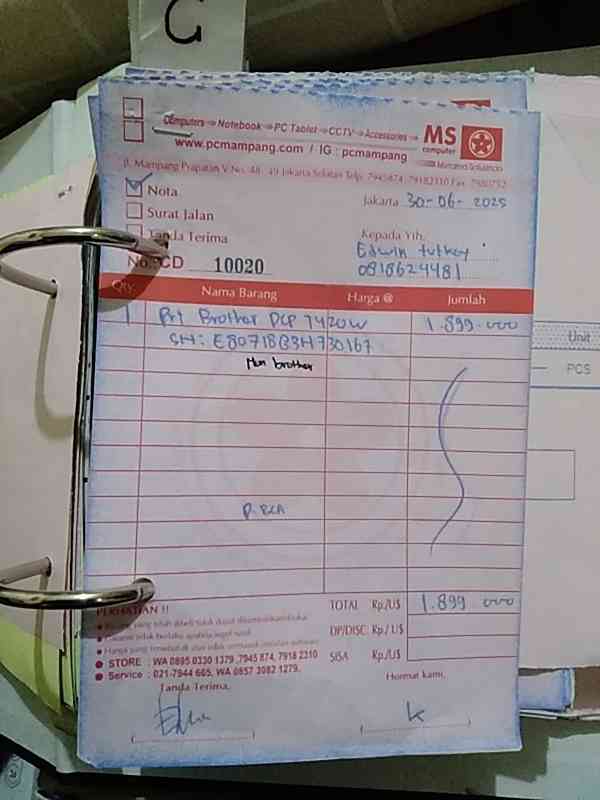 G
Computers Notebook PC Tablet CCTV Accessories
www.pcmampang.com / IG : pcmampang
MS computer
Mutiara Solusindo
Jl. Mampang Prapatan V No. 48 - 49 Jakarta Selatan Telp. 7945874, 79182310 Fax. 7980752
Nota
Jakarta 30-06-2025
Surat Jalan
Tanda Terima
Kepada Yth.
Edwin
No. CD 10020
0818624481
Qty. Nama Barang Harga @ Jumlah
1 Prt Brother DCP T420W 1.899.000
SN: E80718
brother
TOTAL Rp./U$ 1.899.000
PERHATIAN !!
DP/DISC Rp./U$
SISA Rp./U$
STORE : WA 0895 0330 1379 ,7945 874, 7918 2310
Service : 021-7944 665, WA 0857 3082 1279.
Tanda Terima,
Hormat kami,
K
Unit
PCS